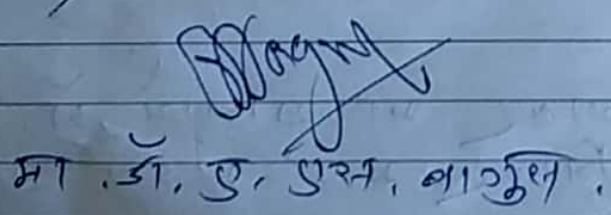 मा. डॉ. ए. एस. बागुल.